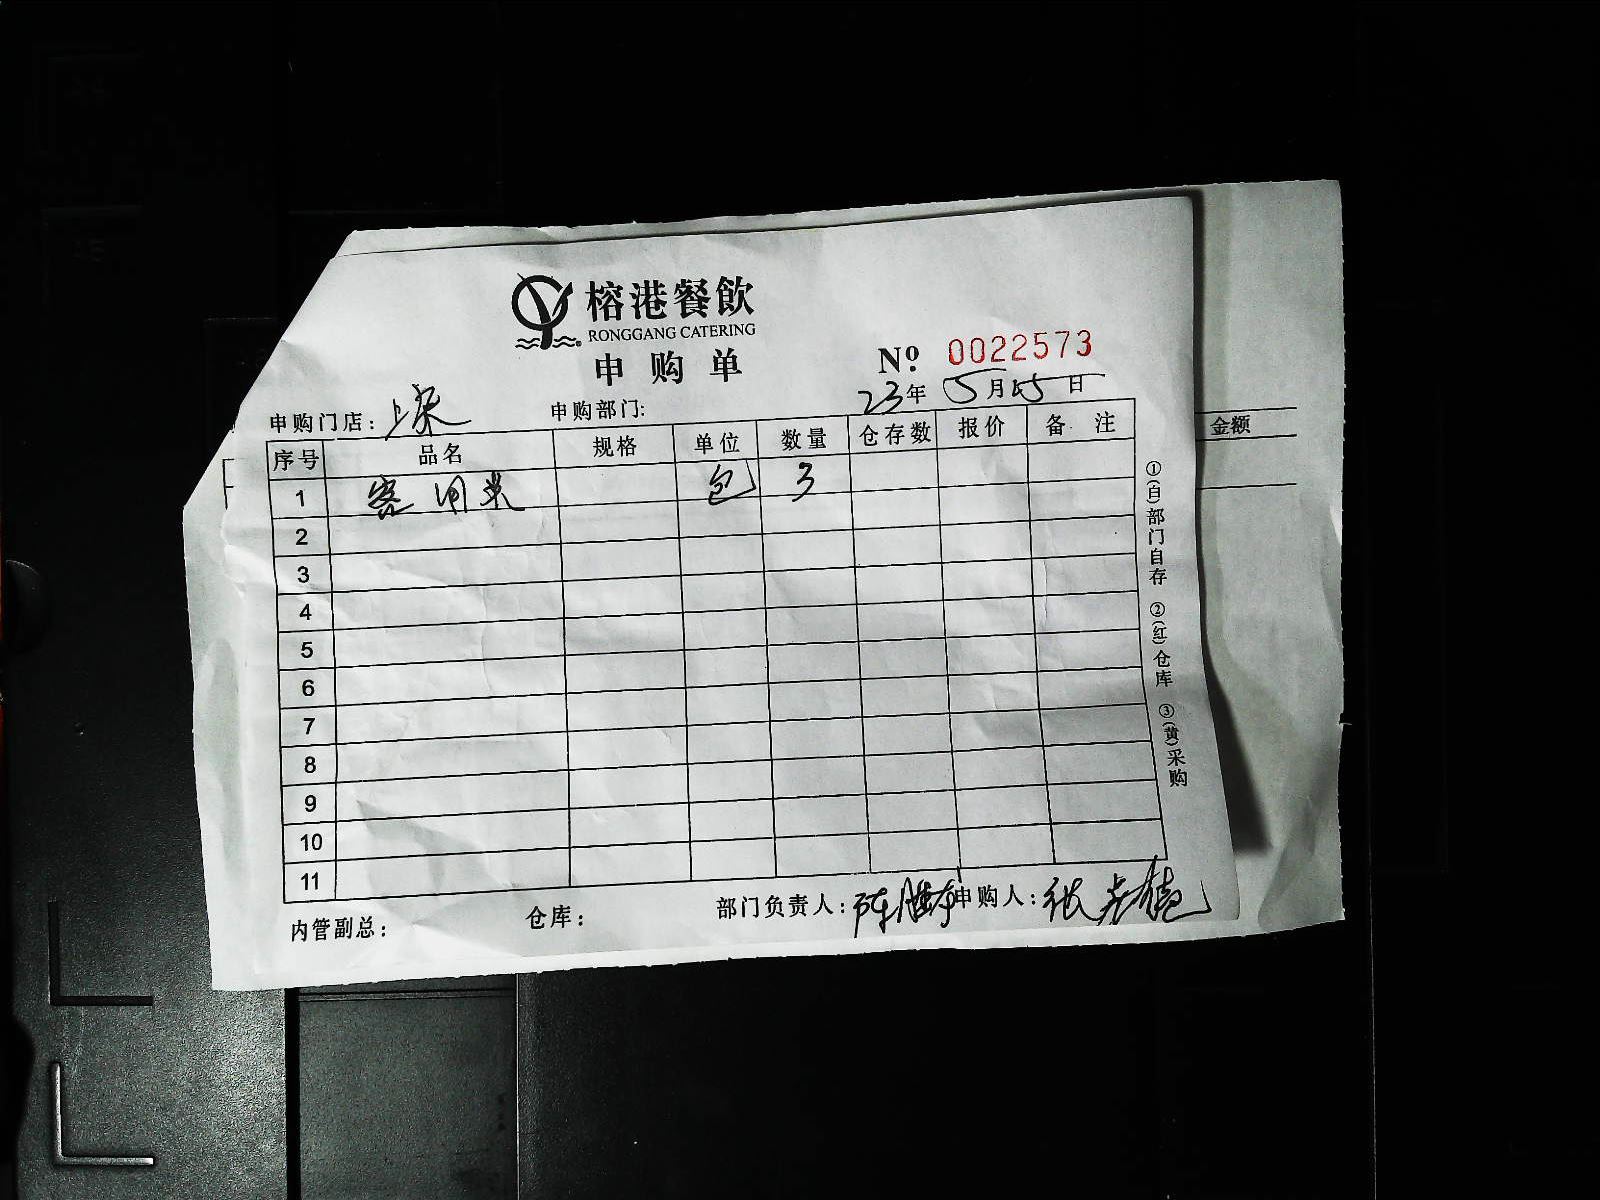 榕港餐飲
RONGGANG CATERING
申购单
Nº 0022573
23年5月25日
申购门店：上床 申购部门:
序号 品名 规格 单位 数量 仓存数 报价 备注
1 客用米 包 3
2
3
4
5
6
7
8
9
10
11
内管副总： 仓库： 部门负责人： 申购人：张
①(白)部门自存 ②(红)仓库 ③(黄)采购
金额